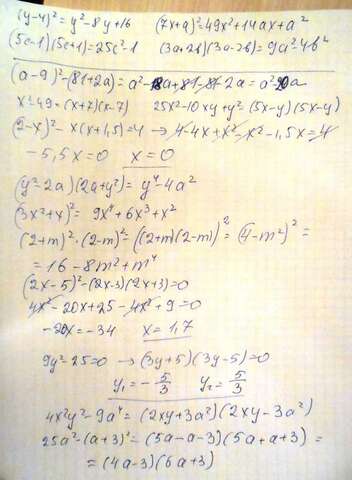 (y-4)²=y²-8y+16 (7x+a)²=49x²+14ax+a²
(5c-1)(5c+1)=25c²-1 (3a+2b)(3a-2b)=9a²-4b²
(a-9)²-(81+2a)=a²-18a+81-81-2a=a²-20a
x²-49=(x+7)(x-7) 25x²-10xy+y²=(5x-y)(5x-y)
(2-x)²-x(x+1,5)=4 → 4-4x+x²-x²-1,5x=4
-5,5x=0 x=0
(y²-2a)(2a+y²)=y⁴-4a²
(3x²+x)²=9x⁴+6x³+x²
(2+m)²·(2-m)²=((2+m)(2-m))²=(4-m²)²=
=16-8m²+m⁴
(2x-5)²-(2x-3)(2x+3)=0
4x²-20x+25-4x²+9=0
-20x=-34 x=1,7
9y²-25=0 → (3y+5)(3y-5)=0
y₁=-5/3 y₂=5/3
4x²y²-9a⁴=(2xy+3a²)(2xy-3a²)
25a²-(a+3)²=(5a-a-3)(5a+a+3)=
=(4a-3)(6a+3)